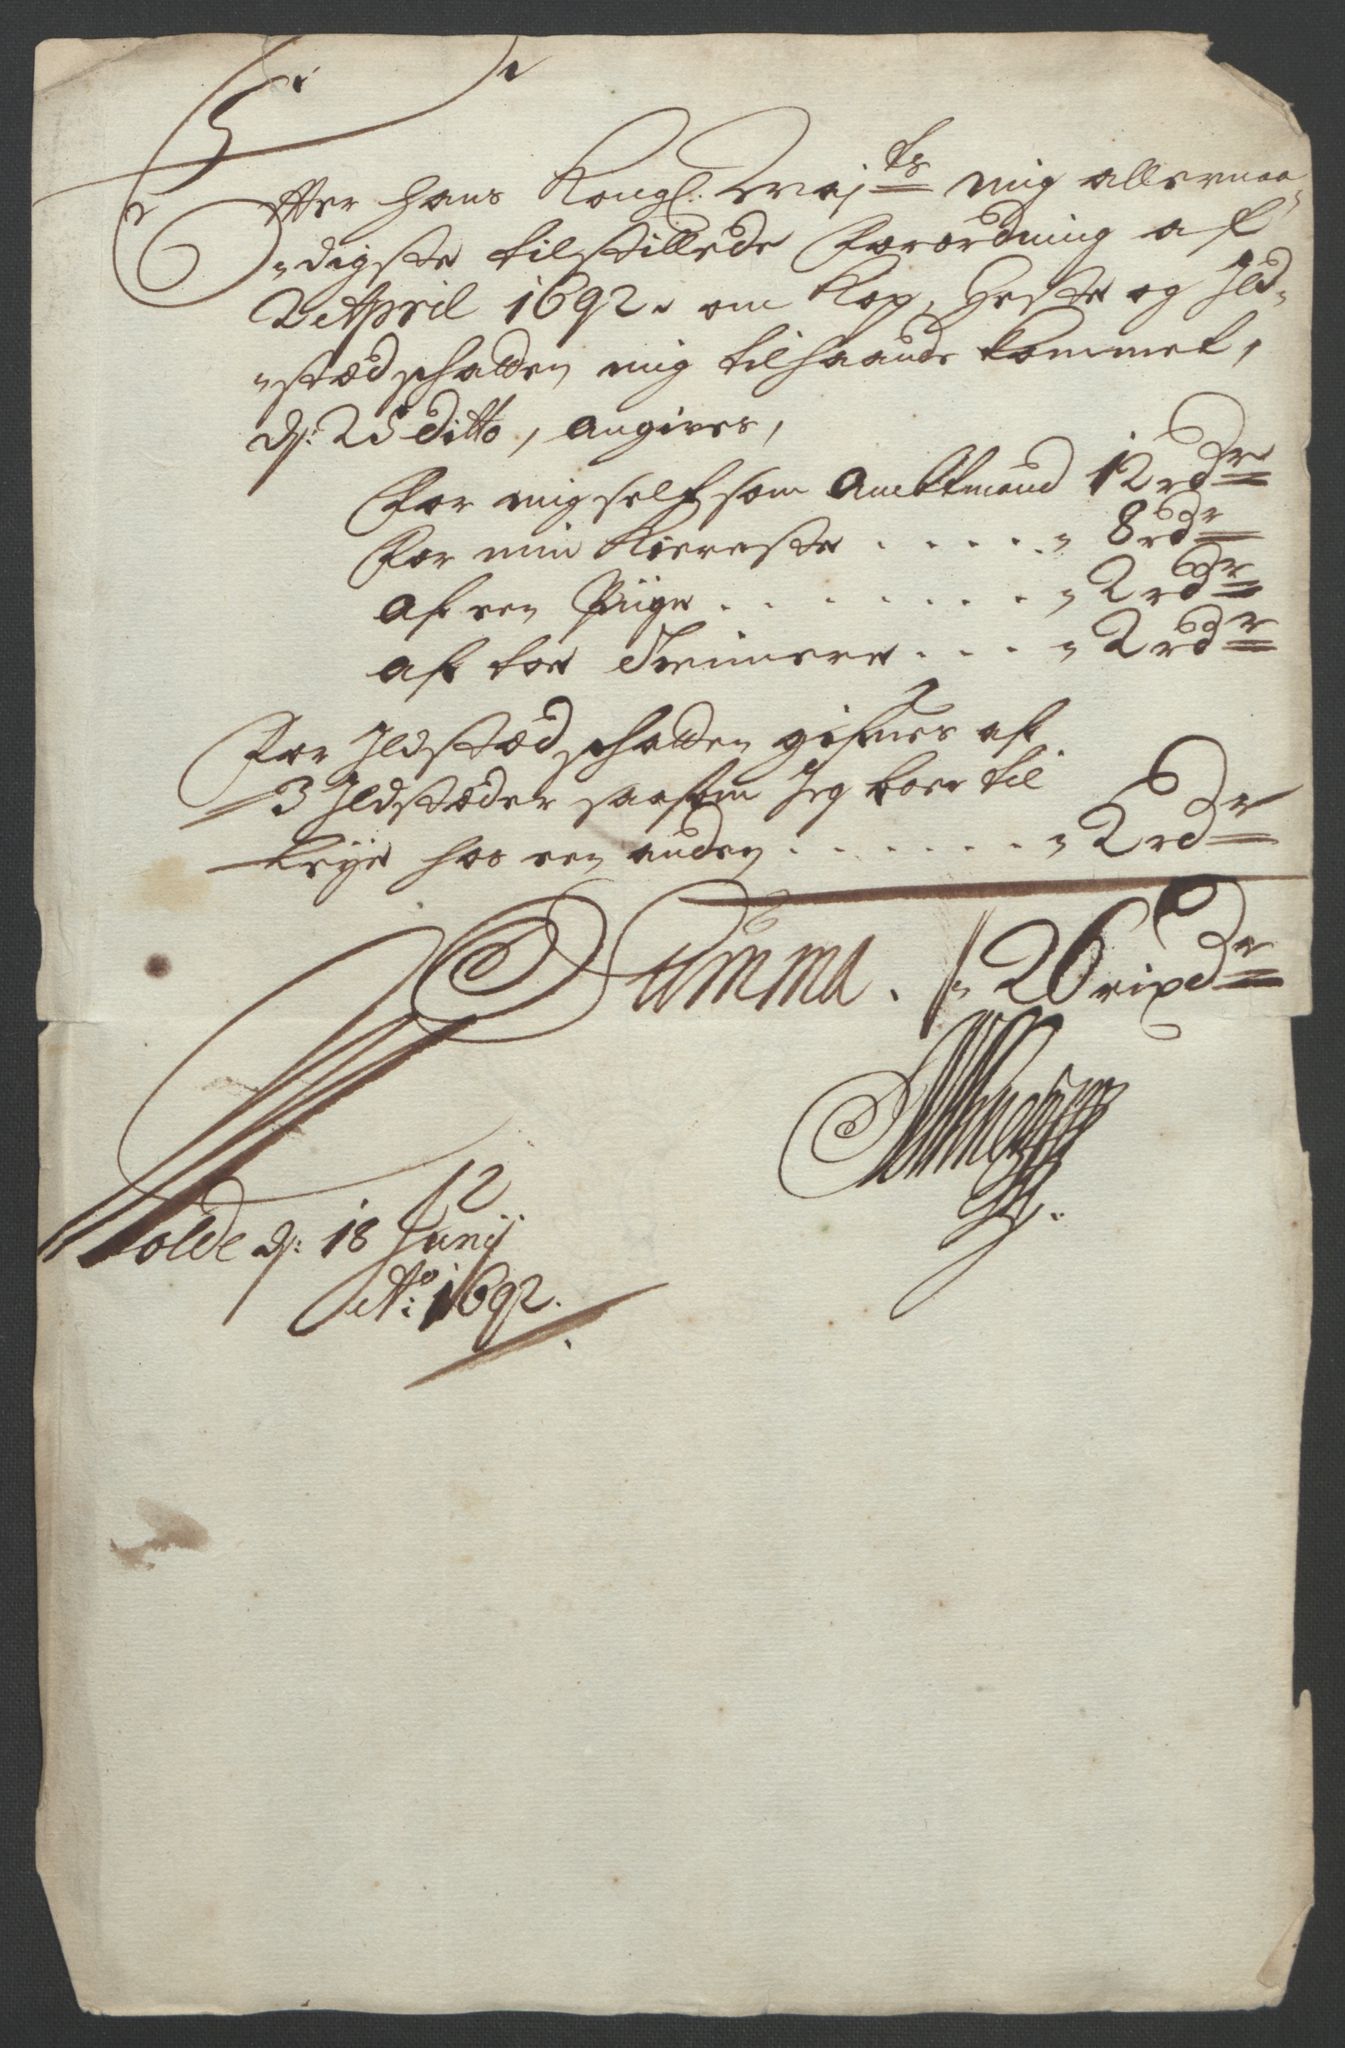 Efter Hans Kongl: Maj^ts mig allernaa-
digste tilstillede Forordning af
2 April 1692. om Kop, Heste og Ild-
stædschatten mig tilhaande kommet,
d: 25 Ditto, angives,
For mig self som Ambtmand 12 rd^r
For min Kiereste . . . . . 8 rd^r
af een Piige . . . . . . . . 2 rd^r
af toe Tiennere . . . . 2 rd^r
For Ildstæd schatten gifues af
3 Ildstæder saasom Jeg boer til
Leye hos een anden . . . . . . 2 rd^r
Summa . 26 rixd^r
Molde d: 18 Junij
A^o: 1692.